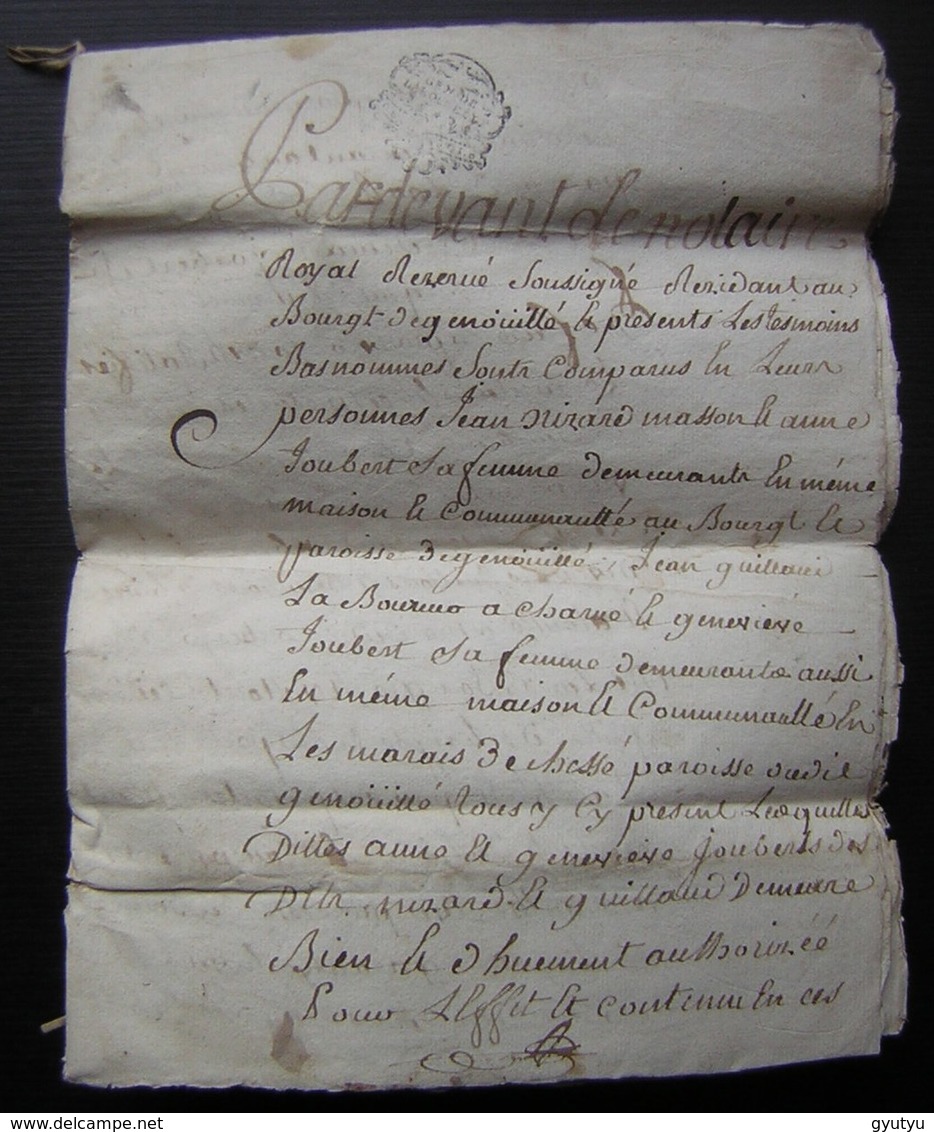 Pardevant le notaire
Royal Rezervé Soussigné Rezidant au
Bourgt de genoüillé & presents Les tesmoins
Bas nommes sont Comparus En Leurs
personnes Jean nizard masson & anne
Joubert sa femme demeurants En méme
maison & Communautté au Bourgt &
paroisse de genoüillé, Jean guillaud
La Boureur a charué & genevieve
Joubert sa femme demeurants aussi
En méme maison & Communautté En
Les marais de chessé paroisse dudit
genoüillé tous y Cy présent Lesquelles
Dittes anne & genevieve Jouberts des
Dits nizard & guillaud Demeure
Bien & dhuement authorizéé
Pour L'Effet & contenu En ces
gyutyu